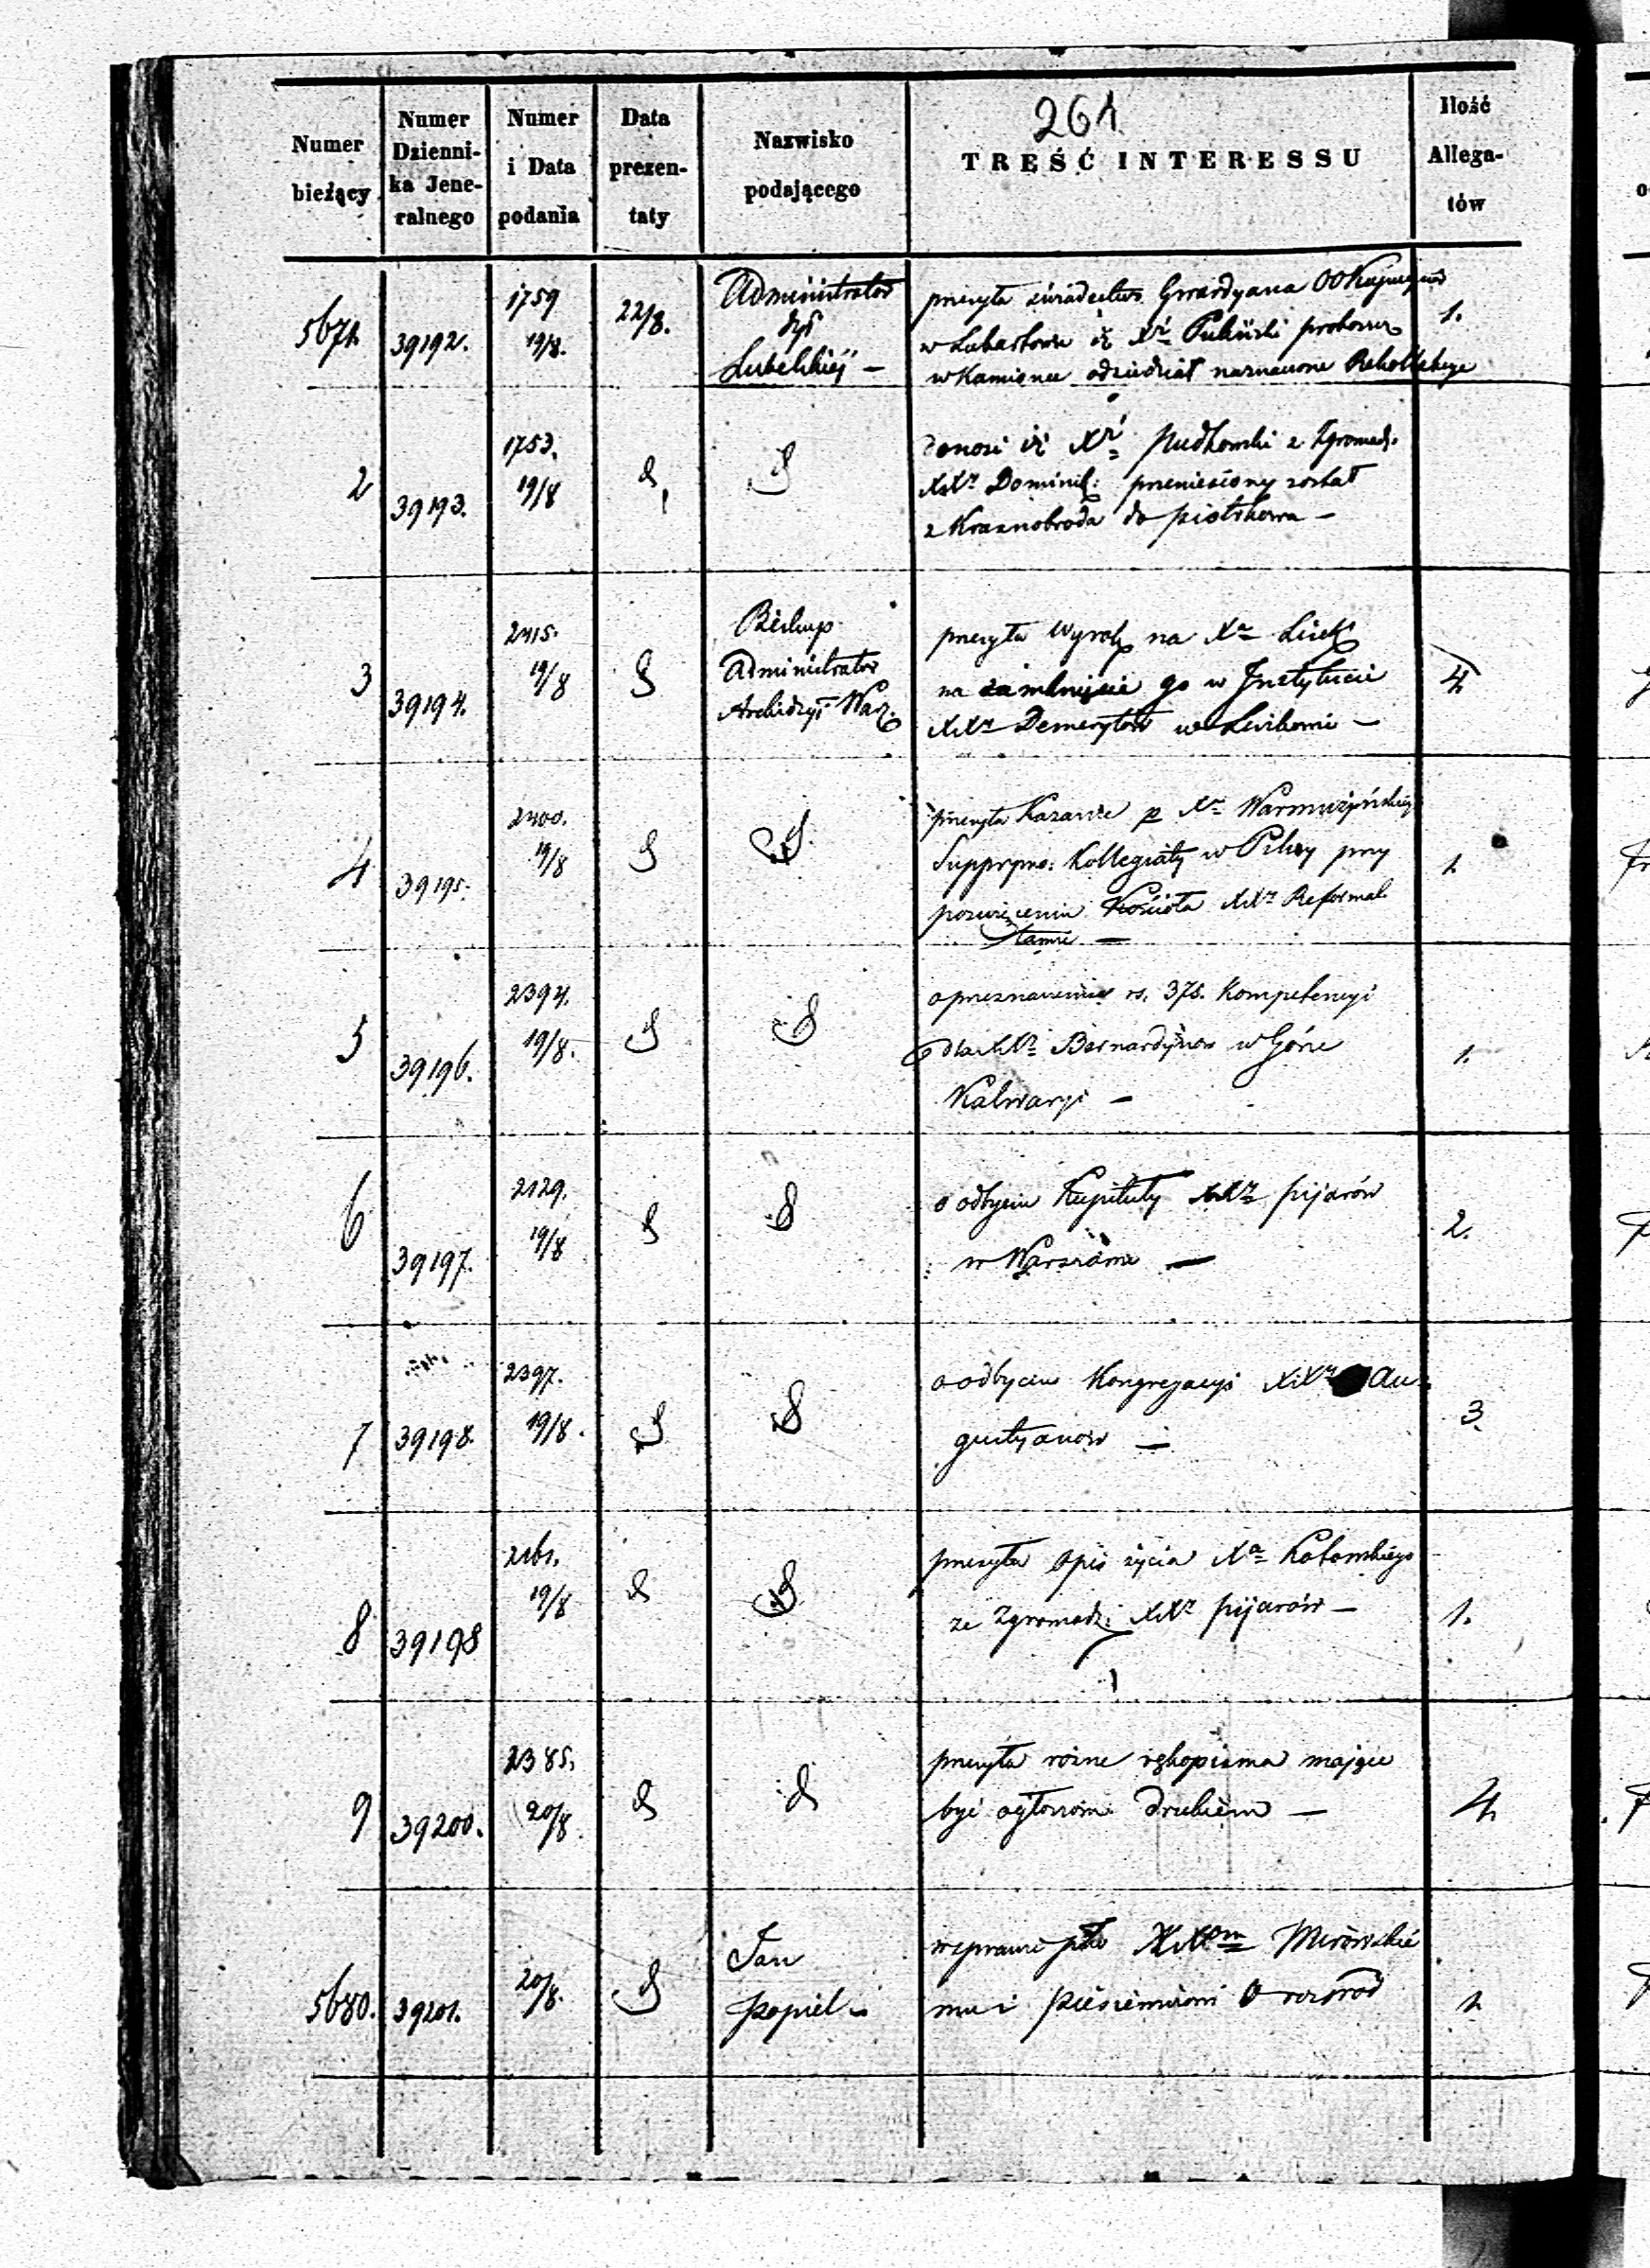 261
Numer bieżący
Numer Dzienni-ka Jene-ralnego
Numer i Data podania
Data prezen-taty
Nazwisko podającego
TREŚĆ INTERESSU
Ilość Allega-tów
5671. 39192. 1759 19/8. 22/8. Administrator 1.
dyi
Lubelskiéj —
przesyła świadectwo Gwardyana OO
w Lubartowie iż Xdz proboszcz
w Kamionce odsiedział naznaczone Rekollekcye
2 39193. 1753. 19/8
donosi iż Xdz Rudkowski z Zgromadz.
XXy Dominik: przeniesiony został
z Krasnobroda do Piotrkowa —
3 39194. 2415. 19/8 Biskup 4.
Administrator
Archidyi Warsz.
przesyła Wyrok na Xa
na zamknięcie go w Instytucie
XXy Demerytów w —
4 39195. 2400. 19/8 1.
przesyła Kazanie p Xa
Kollegiaty w Pilicy przy
poświęceniu Kościoła XXy Reformat
tamże —
5 39196. 2394. 19/8. 1.
o przeznaczenie rs. 375. Kompetencyi
dla XXy Bernardynów w Górze
Kalwaryi —
6 39197. 2129. 19/8 2.
o odbyciu Kapituły XXy pijarów
w Warszawie —
7 39198. 2397. 19/8. 3.
o odbyciu Kongregacyi XXy Au-
gustyanów —
8 39198 2161. 19/8 1.
przesyła opis życia Xa
ze Zgromadz: XXy pijarów —
9 39200. 2385. 20/8. 4.
przesyła rożne rękopisma mające
być ogłoszone drukiem —
5680. 39201. 20/8. Jan 1.
Popiel —
w sprawie XX Mirowskie
mu i o rozwod